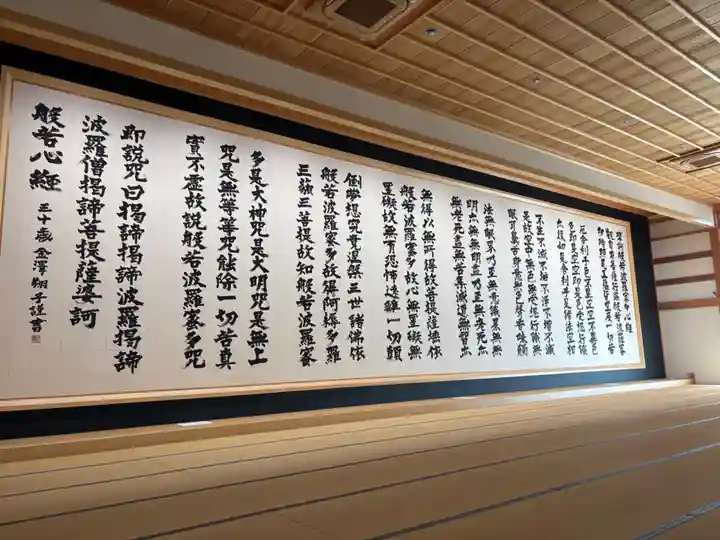 摩訶般若波羅蜜多心經
観自在菩薩行深般若波羅蜜
多時照見五蘊皆空度一切苦
厄舎利子色不異空空不異色
色即是空空即是色受想行識
亦復如是舎利子是諸法空相
不生不滅不垢不浄不増不減
是故空中無色無受想行識無
眼耳鼻舌身意無色声香味觸
法無眼界乃至無意識界無無
明亦無無明盡乃至無老死亦
無老死盡無苦集滅道無智亦
無得以無所得故菩提薩埵依
般若波羅蜜多故心無罣礙無
罣礙故無有恐怖遠離一切顛
倒夢想究竟涅槃三世諸佛依
般若波羅蜜多故得阿耨多羅
三藐三菩提故知般若波羅蜜
多是大神咒是大明咒是無上
咒是無等等咒能除一切苦真
實不虚故説般若波羅蜜多咒
即説咒曰揭諦揭諦波羅揭諦
波羅僧揭諦菩提薩婆訶
般若心経
三十歳 金澤翔子謹書